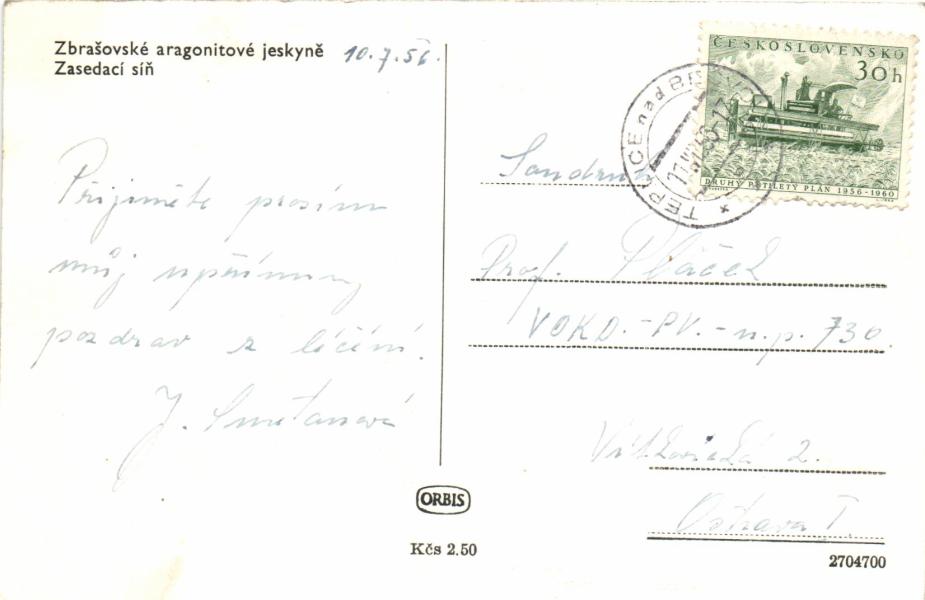 Zbrašovské aragonitové jeskyně
Zasedací síň
10.7.56.
Přijměte prosím
můj upřímný
pozdrav z léčení.
J. Smetanová
ČESKOSLOVENSKO
30h
DRUHÝ PĚTILETÝ PLÁN 1956-1960
TEPLICE nad
Prof. Pláček
VOKD.-PV.-n.p. 730
2.
Ostrava I.
ORBIS
Kčs 2.50
2704700